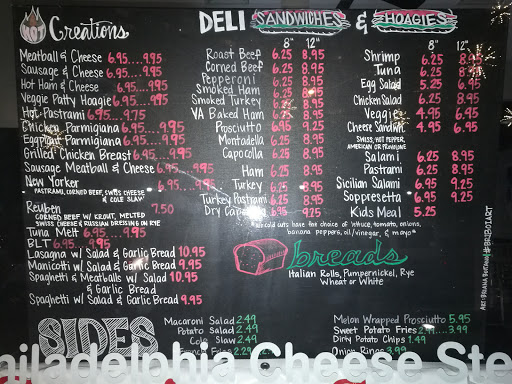 HOT Creations
Meatball & Cheese 6.95....9.95
Sausage & Cheese 6.95....9.95
Hot Ham & Cheese 6.95....9.95
Veggie Patty Hoagie 6.95....9.95
Hot Pastrami 6.95....9.75
Chicken Parmigiana 6.95....9.95
Eggplant Parmigiana 6.95....9.95
Grilled Chicken Breast 6.95....9.95
Sausage Meatball Cheese 6.95....9.95
New Yorker 6.95....9.95
PASTRAMI, CORNED BEEF, SWISS CHEESE
& COLE SLAW
Reuben 7.50
CORNED BEEF W/ KROUT, MELTED
SWISS CHEESE & RUSSIAN DRESSING IN RYE
Tuna Melt 6.95....9.95
BLT 6.95....9.95
Lasagna w/ Salad & Garlic Bread 10.95
Manicotti w/ Salad & Garlic Bread 9.95
Spaghetti & Meatballs w/ Salad 10.95
& Garlic Bread
Spaghetti w/ Salad & Garlic Bread 9.95
DELI SANDWICHES & HOAGIES
8" 12"
Roast Beef 6.25 8.95
Corned Beef 6.25 8.95
Pepperoni 6.25 8.95
Smoked Ham 6.25 8.95
Smoked Turkey 6.25 8.95
VA Baked Ham 6.25 8.95
Prosciutto 6.95 9.25
Montadella 6.25 8.95
Capocolla 6.25 8.95
Ham 6.25 8.95
Turkey 6.25 8.95
Turkey Pastrami 6.25 8.95
Dry Capacolla 6.95 9.25
8" 12"
Shrimp 6.25 8.95
Tuna 6.25 8.95
Egg Salad 5.25 6.95
Chicken Salad 6.25 8.95
Veggie 4.95 6.95
Cheese Sandwich 4.95 6.95
SWISS, HOT PEPPER,
AMERICAN OR PROVOLONE
Salami 6.25 8.95
Pastrami 6.25 8.95
Sicilian Salami 6.95 9.25
Soppresetta 6.95 9.25
Kids Meal 5.25
*all cold cuts have the choice of lettuce, tomato, onions,
banana peppers, oil/vinegar, & mayo*
breads
Italian Rolls, Pumpernickel, Rye
Wheat or White
#BRIBOIART
SIDES
Macaroni Salad 2.49
Potato Salad 2.49
Cole Slaw 2.49
French Fries 2.29
Melon Wrapped Prosciutto 5.95
Sweet Potato Fries 3.99
Dirty Potato Chips 1.49
Onion Rings 3.99
hiladelphia Cheese Ste